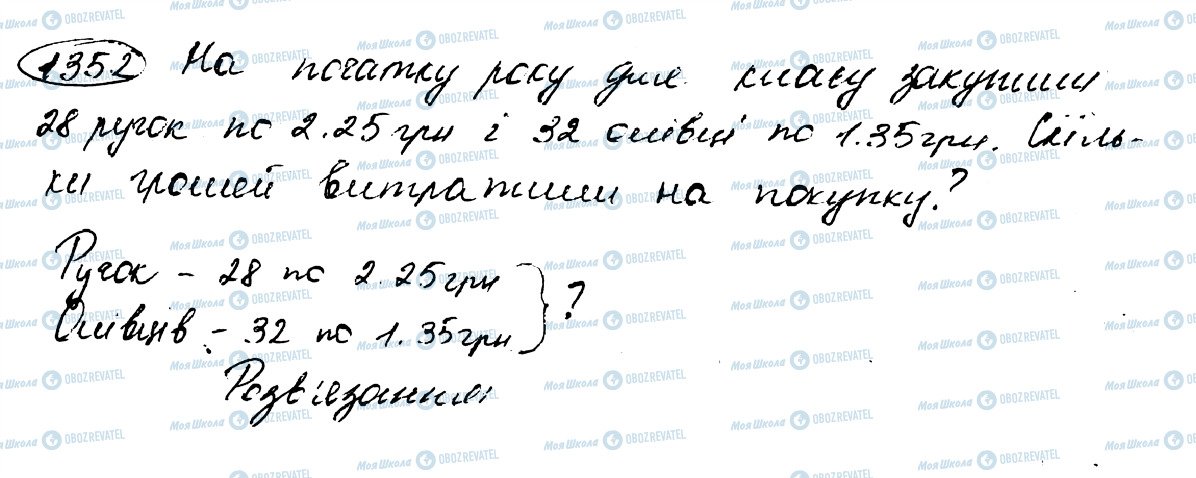 1352 На початку року для класу закупили
28 ручок по 2.25 грн і 32 олівці по 1.35 грн. Скіль-
ки грошей витратили на покупку?
Ручок - 28 по 2.25 грн
Олівців - 32 по 1.35 грн } ?
Розв'язання: